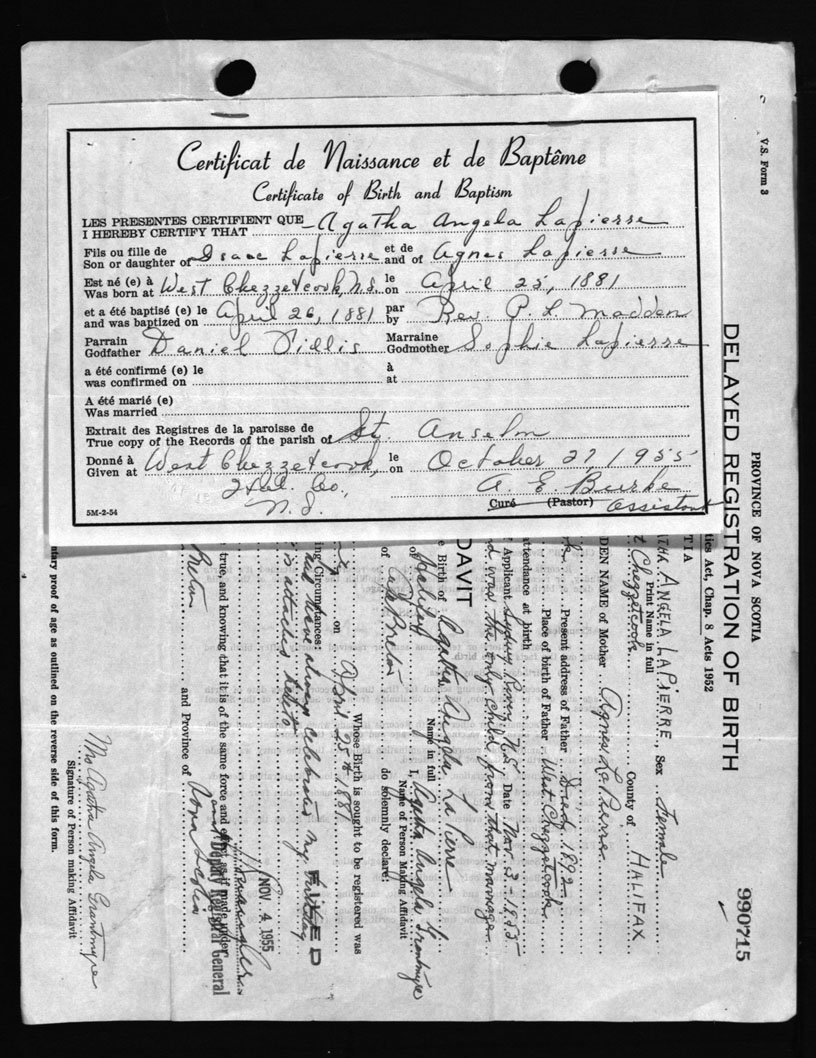 Certificat de Naissance et de Baptême
Certificate of Birth and Baptism
LES PRESENTES CERTIFIENT QUE
I HEREBY CERTIFY THAT Agatha Angela Lapierre
Fils ou fille de et de
Son or daughter of Isaac Lapierre and of Agnes Lapierre
Est né (e) à le
Was born at West Chezzetcook, N.S. on April 25, 1881
et a été baptisé (e) le par
and was baptized on April 26, 1881 by Rev. P. L. Madden
Parrain Marraine
Godfather Daniel Godmother Sophie Lapierre
a été confirmé (e) le à
was confirmed on at
A été marié (e)
Was married
Extrait des Registres de la paroisse de
True copy of the Records of the parish of St. Anselm
Donné à le
Given at West Chezzetcook, on October 27 1955
Hal. Co., A. E. Burke
N.S. Curé (Pastor) assistant
5M-2-54
V.S. Form 3
PROVINCE OF NOVA SCOTIA
DELAYED REGISTRATION OF BIRTH
990715
ties Act, Chap. 8 Acts 1952
TIA
THA ANGELA LAPIERRE, Sex Female
Print Name in full
t Chezzetcook County of HALIFAX
DEN NAME of Mother Agnes LaPierre
Present address of Father Died 1892
Place of birth of Father West Chezzetcook
attendance at birth
Applicant Sydney River, N.S. Date Nov. 3-1955
d was the only child from that marriage
DAVIT
e Birth of Agatha Angela LaPierre
Name in full
of Halifax I, Agatha Angela Grantmyre
Name of Person Making Affidavit
of Cape Breton do solemnly declare:
Whose Birth is sought to be registered was
on April 25th 1881
ing Circumstances:
have always celebrated my birthday
is attached hereto
FILED
NOV. 4 1955
Deputy Registrar General
true, and knowing that it is of the same force and effect as if made under
Breton and Province of Nova Scotia
Mrs Agatha Angela Grantmyre
Signature of Person making Affidavit
ntary proof of age as outlined on the reverse side of this form.